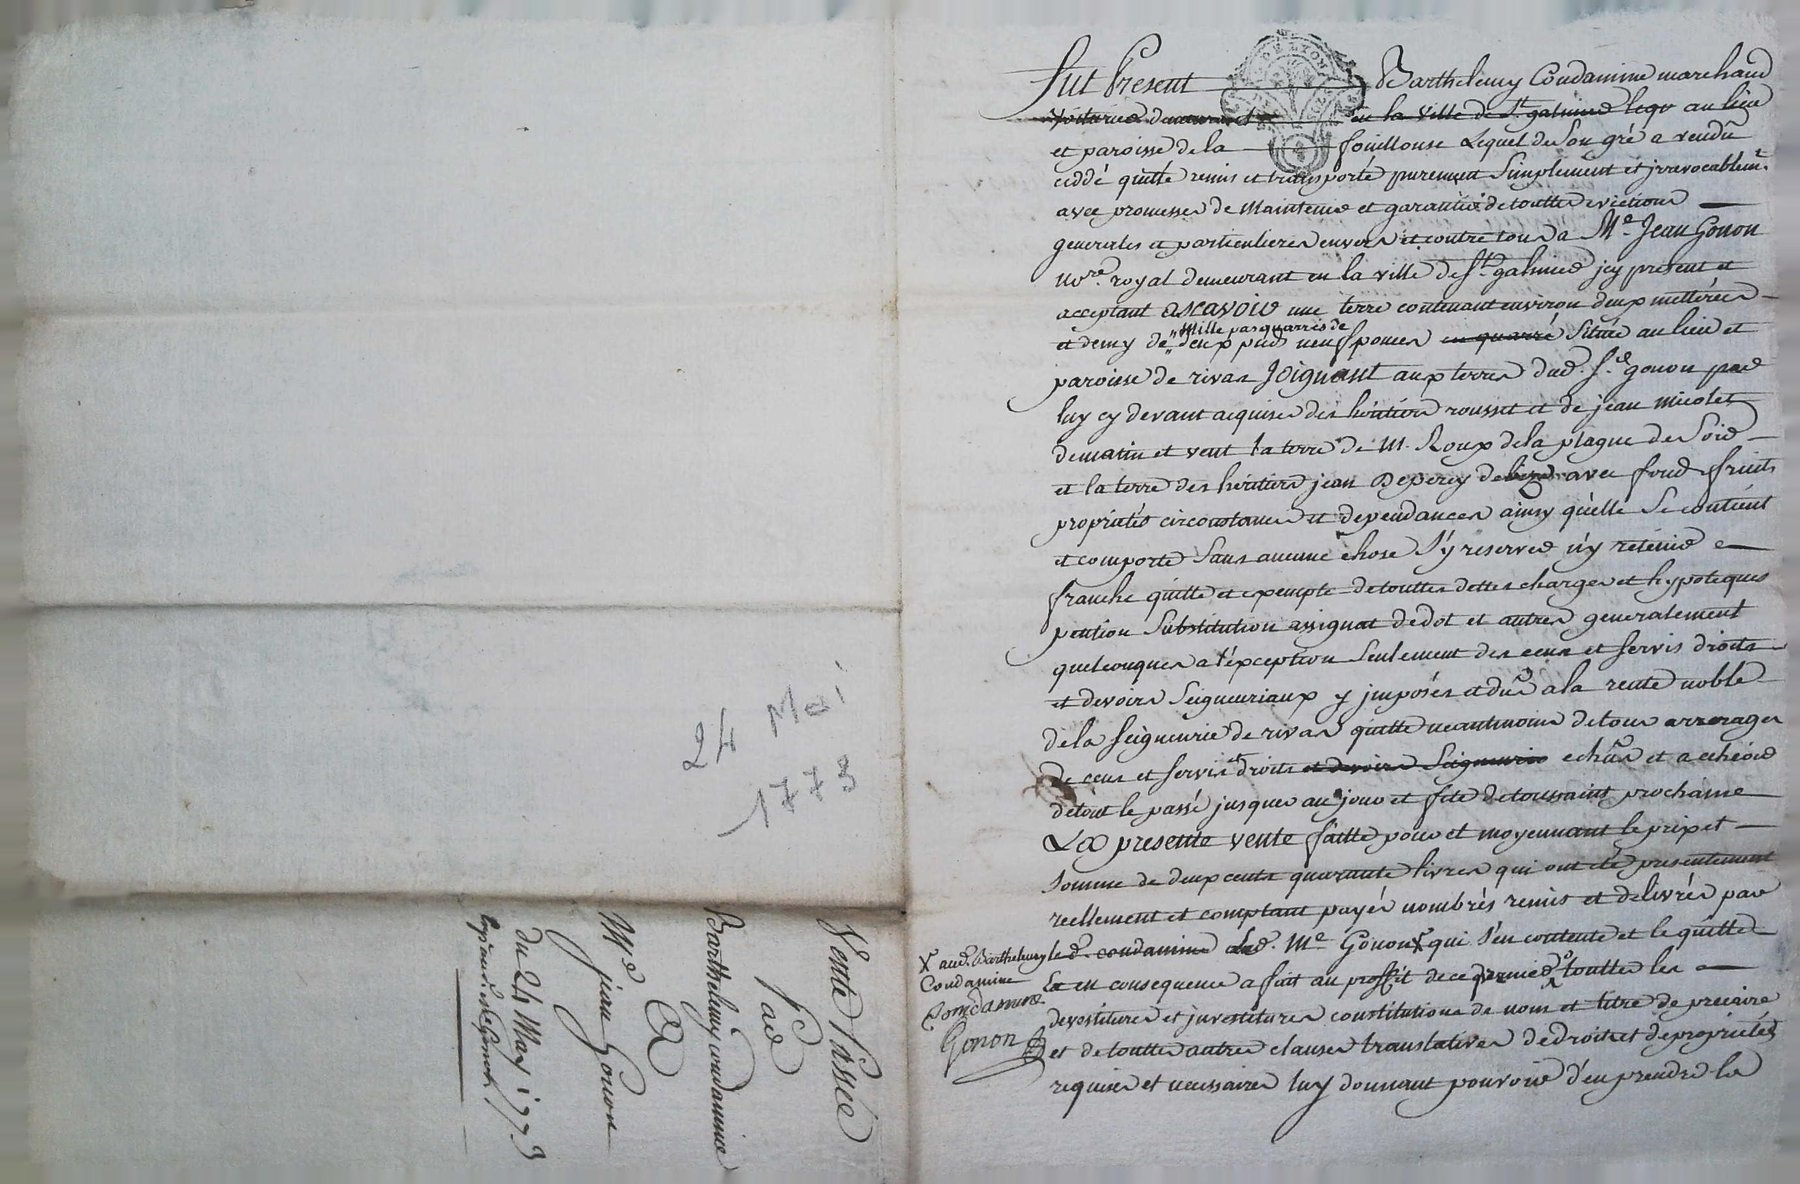 fut Present Barthelemy Coudamine marchand
voiturier demeurant en la ville de St galmier au lieu
et paroisse de la fouillouse Lequel de son gré a vendu
ceddé quitté remis et transporté purement Simplement et jrrevocablemt
avec promesses de Maintenir et garantir de touttes evictions
generales et particulieres envers et contre tous a Me Jean Gonon
nore royal demeurant en la ville de St galmier jcy present et
acceptant ascavoir une terre contenant environ deux metterées
mille pas quarrés de
et demy de deux pieds neuf pouces en quarré Située au lieu et
paroisse de rivas Joignant aux terres dud. Sr gonon par
luy cy devant acquises des heritiers rousset et de jean micolet
de matin et vent la terre de M. Roux de la plagne de Soir
et la terre des heritiers jean Deperey de bize avec fond fruits
proprietés circonstances et dependances ainsy qu'elle Se contient
et comporte Sans aucune chose S'y reserver n'y retenir
franche quitte et exempte de touttes dettes charges et hypoteques
pention Substitution assignat de dot et autres generalement
quelconques a l'exception Seulement des cens et servis droits
et devoirs Seigneuriaux y jmposés et dus a la rente noble
de la seigneurie de rivas quitte neantmoins de tous arrerages
de cens et servis et droits et devoirs Seigneuriaux echus et a echeoir
de tout le passé jusques au jour et fete de toussaint prochaine
La presente vente faitte pour et moyennant le prix et
somme de deux cents quarante livres qui ont eté presentement
reellement et comptant payés nombrés remis et delivrés par
led. coudamine Led. Me Gonon X qui s'en contente et le quitte
X aud. Barthelemy
Coudamine
Condamine
Gonon
Et en consequence a fait au proffit de ce dernier touttes les
devestitures et jnvestitures constitutions de nom et titre de precaire
et de touttes autres clauses translatives de droits et de proprietés
requises et necessaires luy donnant pouvoir d'en prendre la
24 Mai
1773
Vente Passée
Par
Barthelemy coudamine
A
Me jean Gonon
du 24 May 1773